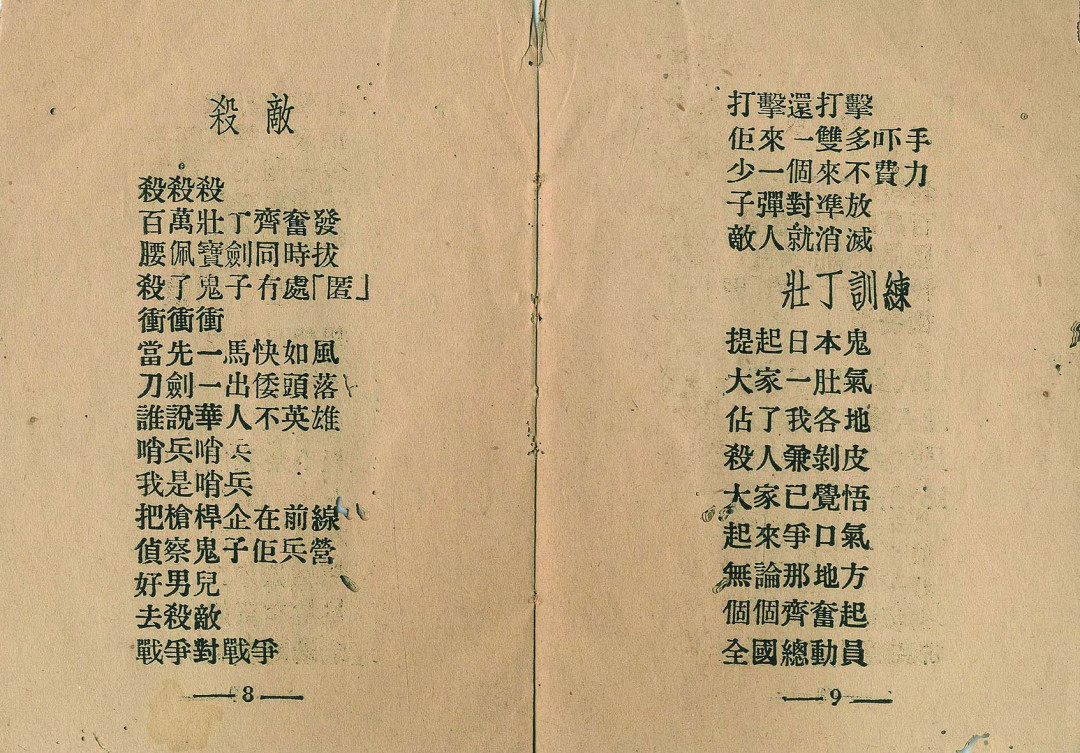 殺敵
殺殺殺
百萬壯丁齊奮發
腰佩寶劍同時拔
殺了鬼子冇處「匿」
衝衝衝
當先一馬快如風
刀劍一出倭頭落
誰說華人不英雄
哨兵哨兵
我是哨兵
把槍桿企在前線
偵察鬼子佢兵營
好男兒
去殺敵
戰爭對戰爭
8
打擊還打擊
佢來一雙多吓手
少一個來不費力
子彈對準放
敵人就消滅
壯丁訓練
提起日本鬼
大家一肚氣
佔了我各地
殺人兼剝皮
大家已覺悟
起來爭口氣
無論那地方
個個齊奮起
全國總動員
9